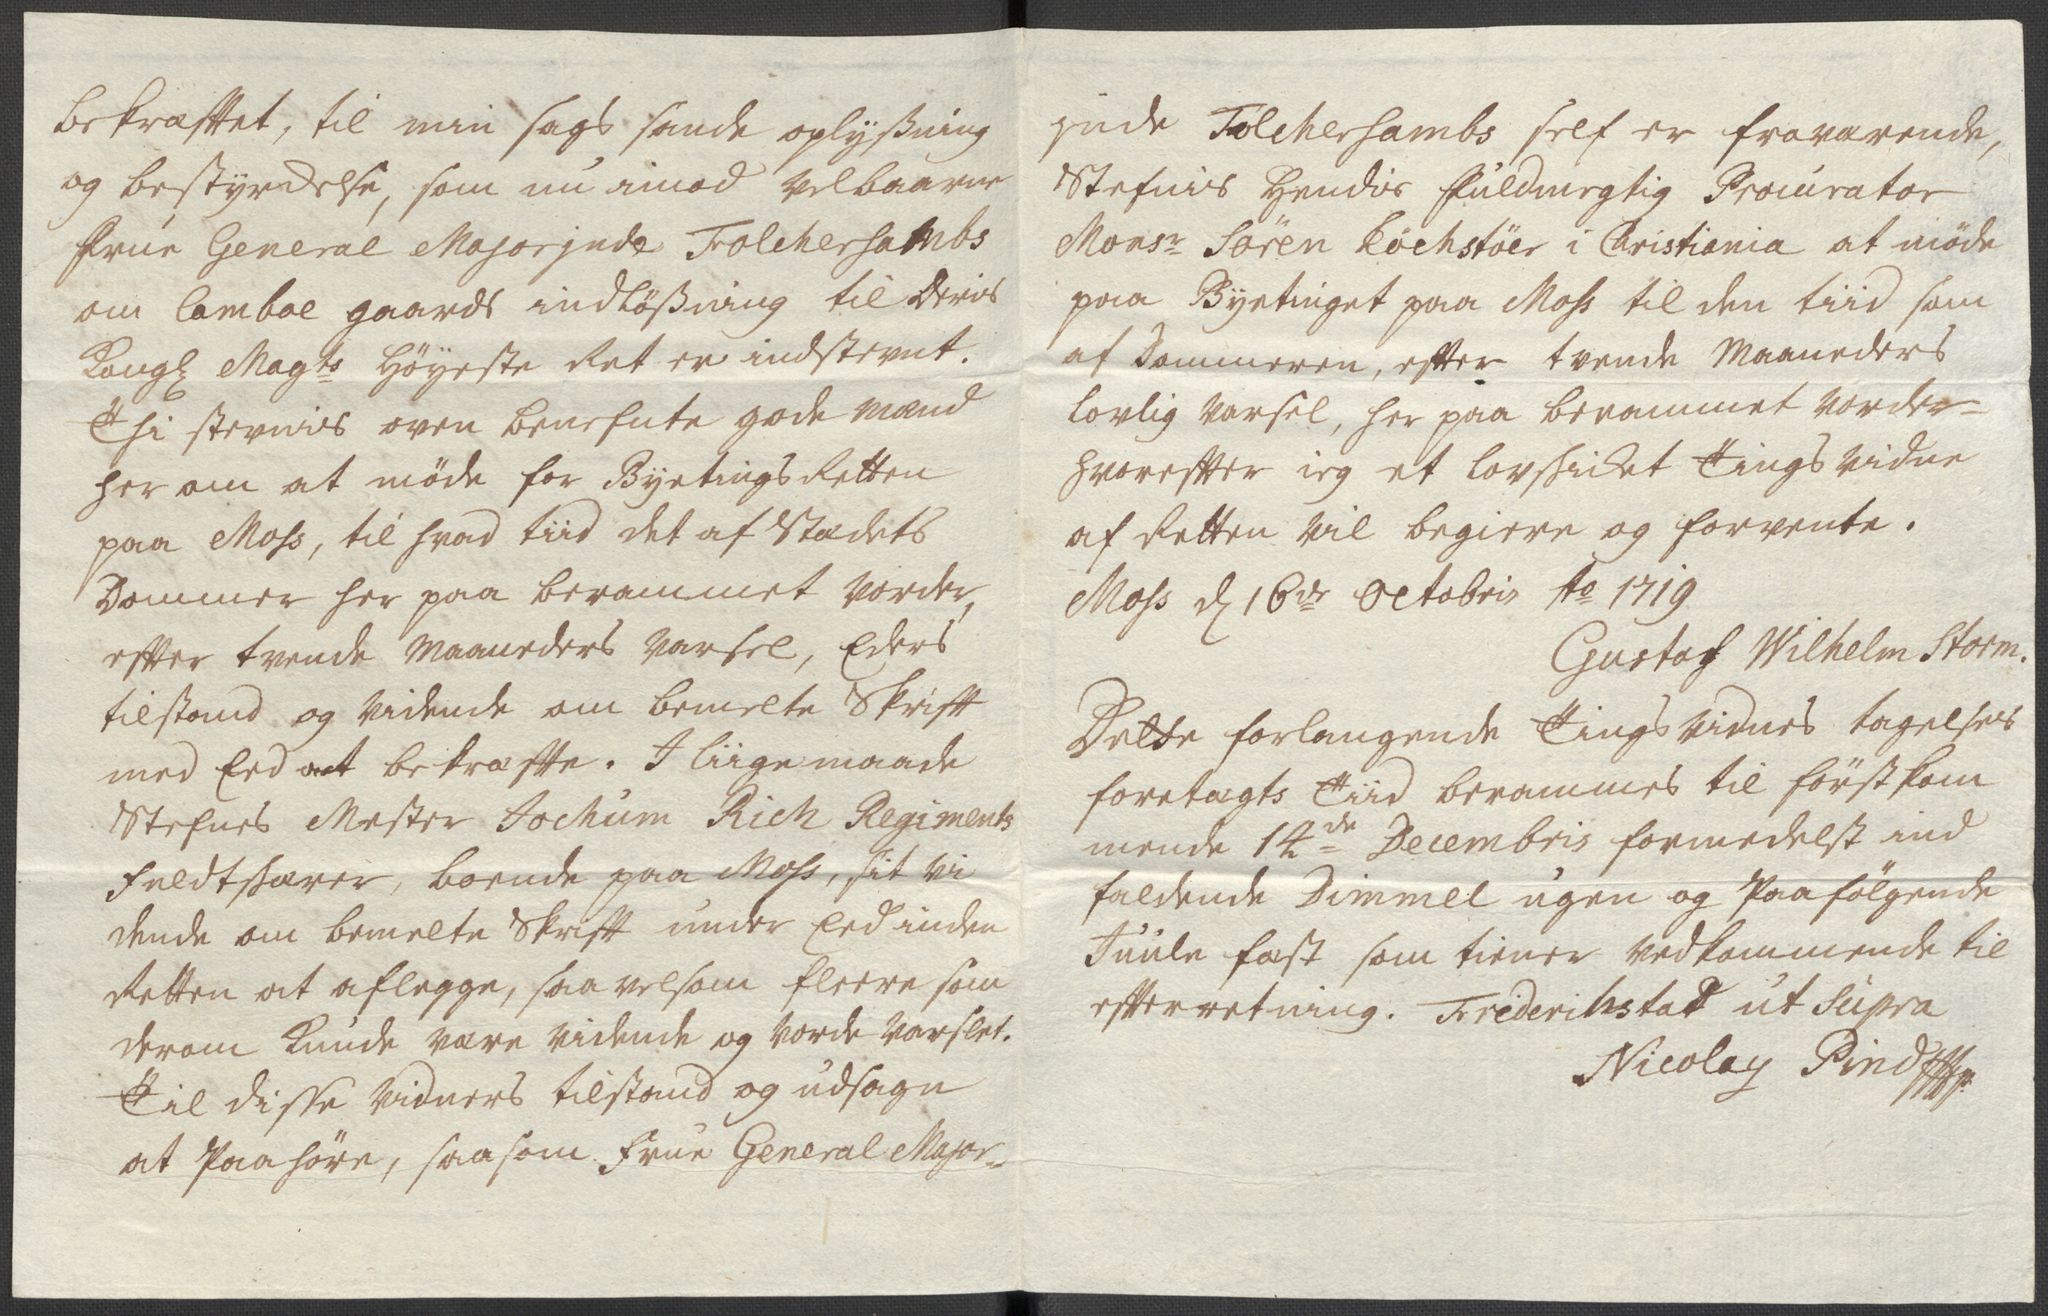 bekræfftet, til min sags sande oplyßning
og bestyrdelse, som nu imod velbaarne
frue General Majorjnde Tolchersambs
om Camboe gaards indlößning til Deris
Kongl Mayts Höyeste Ret er indstevnt.
Thi stevnis oven benefnte gode mænd
her om at möde for Byetings Retten
paa Moss, til hvad tiid det af Stædets
Dommer her paa berammet vorder,
effter tvende Maaneders varsel, Eders
tilstand og vidende om bemelte Skrifft
med Eed at bekræffte. I liige maade
Stefnes Mester Jochum Rich Regiments
feldtskærer, boende paa Moss, sit vi
dende om bemelte Skrifft under Eed inden
Retten at aflegge, saavelsom fleere som
derom kunde være vidende og vorde varslet.
Til disse vidners tilstand og udsagn
at Paahöre, saasom frue General Major-
jnde Tolchersambs self er fraværende,
Stefnis Hendis fuldmegtig Procurator
Monsr Sören Köchstöer i Christiania at möde
paa Byetinget paa Moss til den tiid som
af Dommeren, effter tvende Maaneders
lovlig varsel, her paa berammet vorder-
hvoreffter ieg et lovskicket Tings vidne
af Retten vil begiere og forvente.
Moss d 16de Octobris Ao 1719
Gustaf Wilhelm Storm.
Dette forlangende Tings vidnes tagelses
foretagts Tiid berammes til förstkom
mende 14de Decembris formedelst ind
faldende Dimmel ugen og Paafölgende
Juule fæst som tiener vedkommende til
effterretning. Friderichstad ut Supra
Nicolay Pind